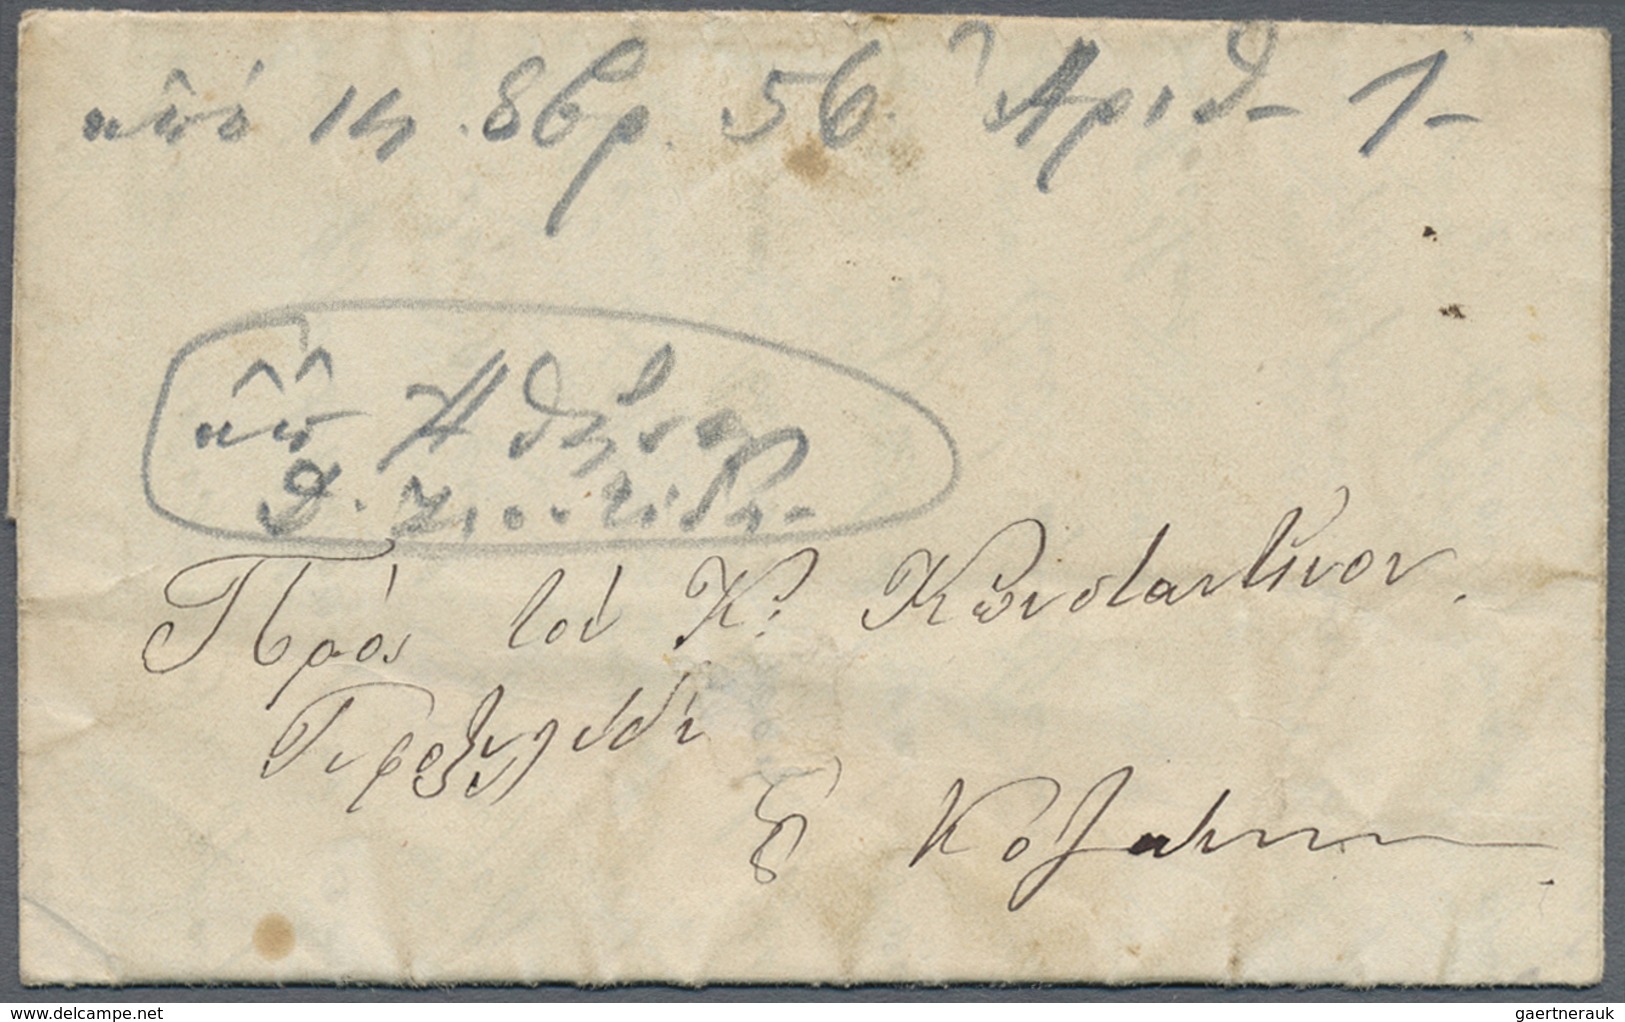 ἀπὸ 14 8βρ. 56. Ἀριθ- 1-
ἀπὸ Ἀθήνας
Δ.
Πρὸς τὸν Κ: Κωνσταντῖνον
Κοζάνην
www.delcampe.net
gaertnerauk